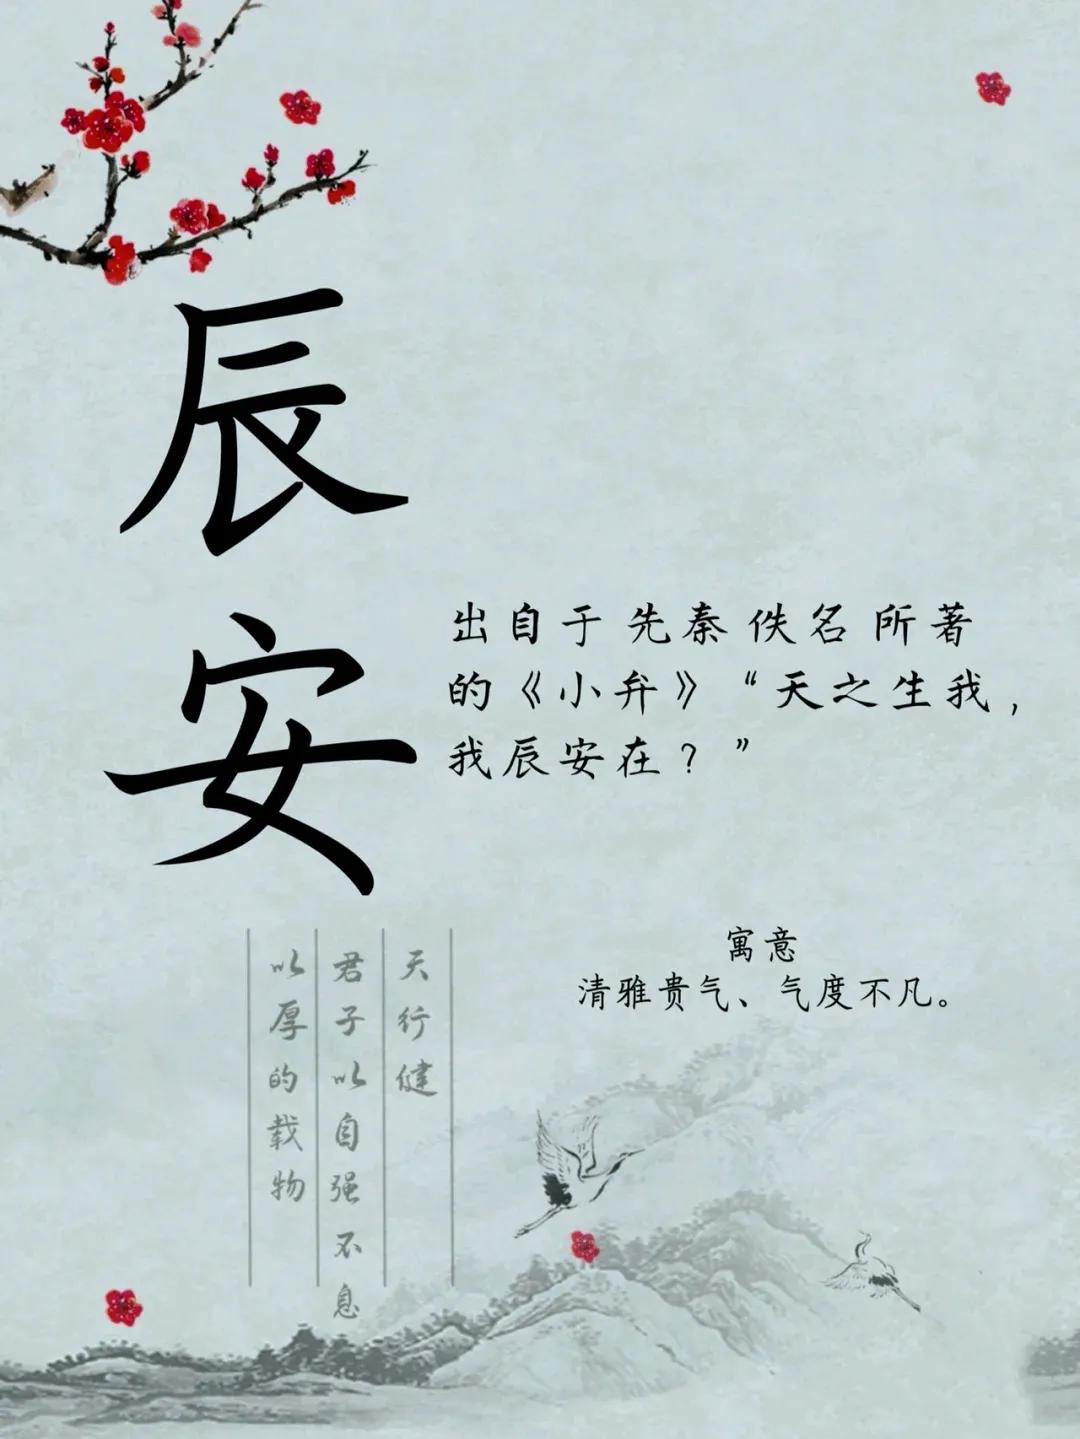 辰安
出自于先秦佚名所著
的《小弁》“天之生我，
我辰安在？”
寓意
清雅贵气、气度不凡。
天行健
君子以自强不息
以厚的载物